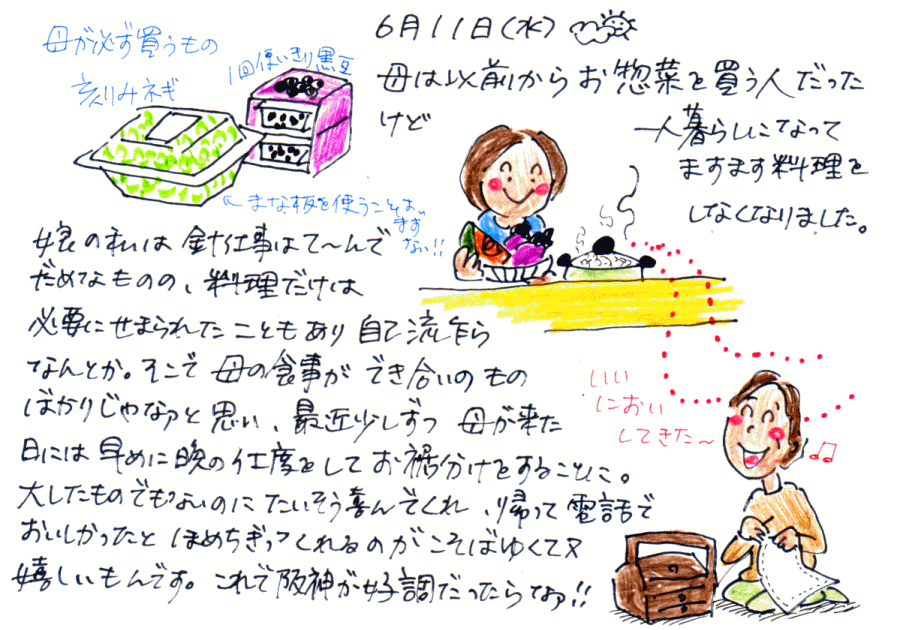 6月11日(水)
母は以前からお惣菜を買う人だった
けど
一人暮らしになって
ますます料理を
しなくなりました。
母が必ず買うもの
刻みネギ
1回使いきり黒豆
←まな板を使うことは、
まず
ない!!
娘の私は 針仕事はて〜んで
だめなものの、料理だけは
必要にせまられたこともあり 自己流乍ら
なんとか。そこで 母の食事が でき合いのもの
ばかりじゃなァと思い、最近少しずつ 母が来た
日には 早めに晩の仕度をして お裾分けをすることに。
大したものでもないのに たいそう喜んでくれ、帰って電話で
おいしかったと ほめちぎってくれるのが こそばゆくて又
嬉しいもんです。これで阪神が好調だったらなァ!!
いい
におい
してきた〜